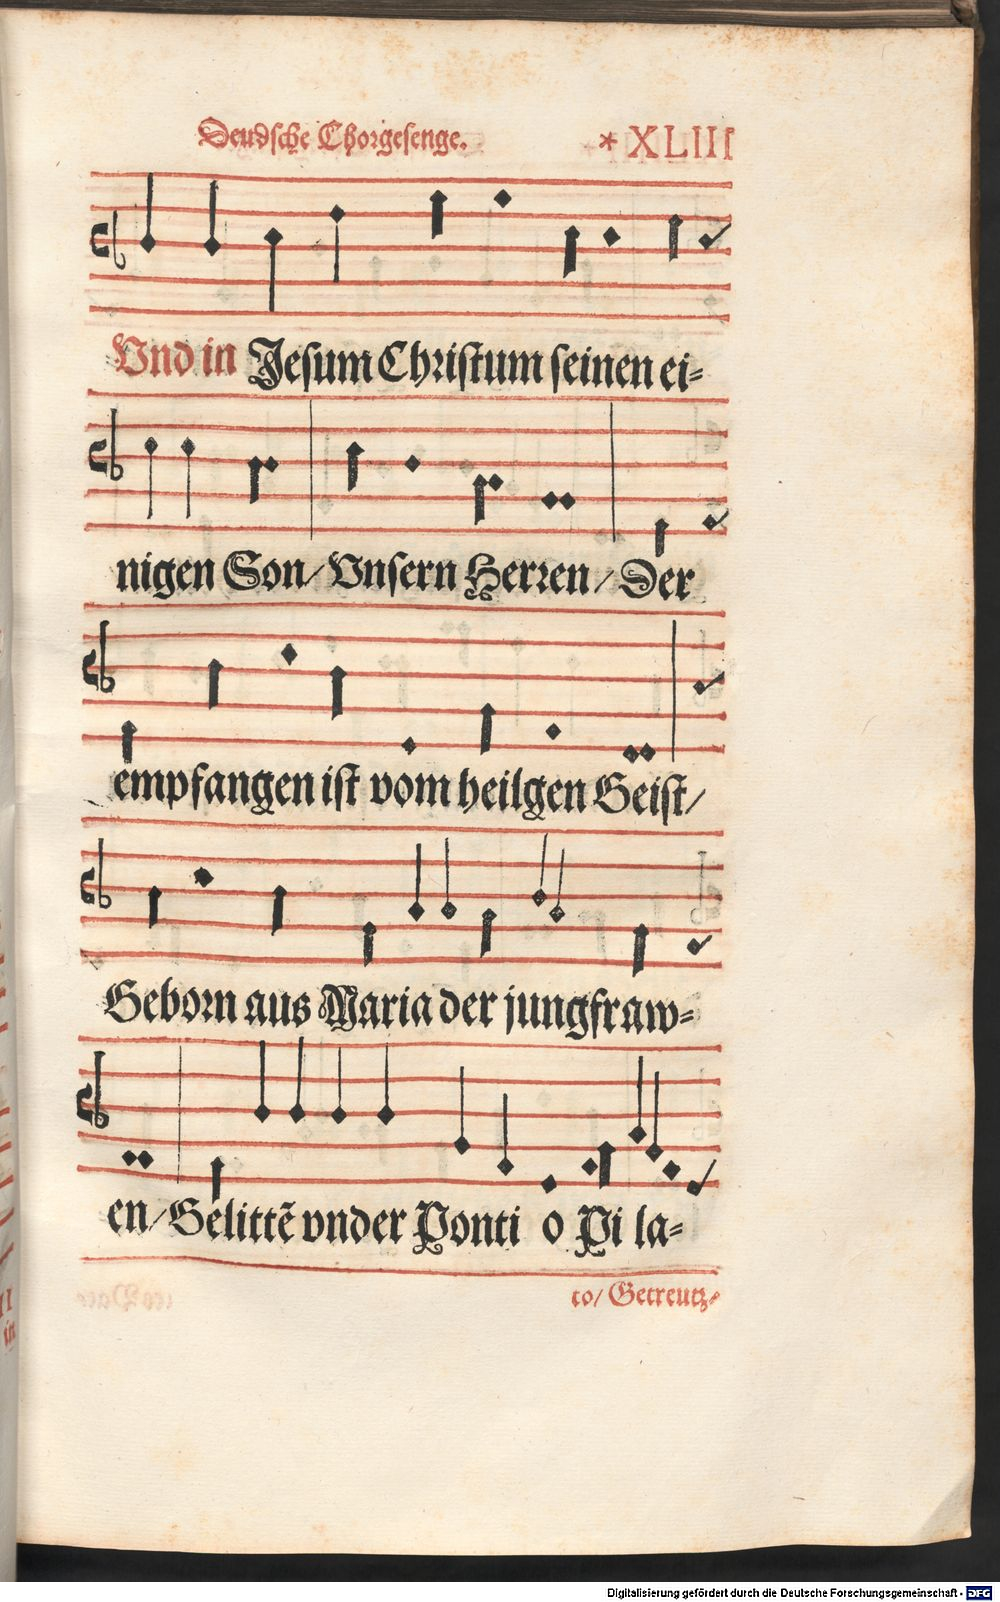 Deudsche Chorgesenge. * XLIII
Vnd in Jesum Christum seinen ei⸗
nigen Son/ Vnsern Herren/ Der
empfangen ist vom heilgen Geist/
Geborn aus Maria der jungfraw⸗
en/ Gelittẽ vnder Ponti o Pi la⸗
to/ Gecreutz⸗
Digitalisierung gefördert durch die Deutsche Forschungsgemeinschaft - DFG